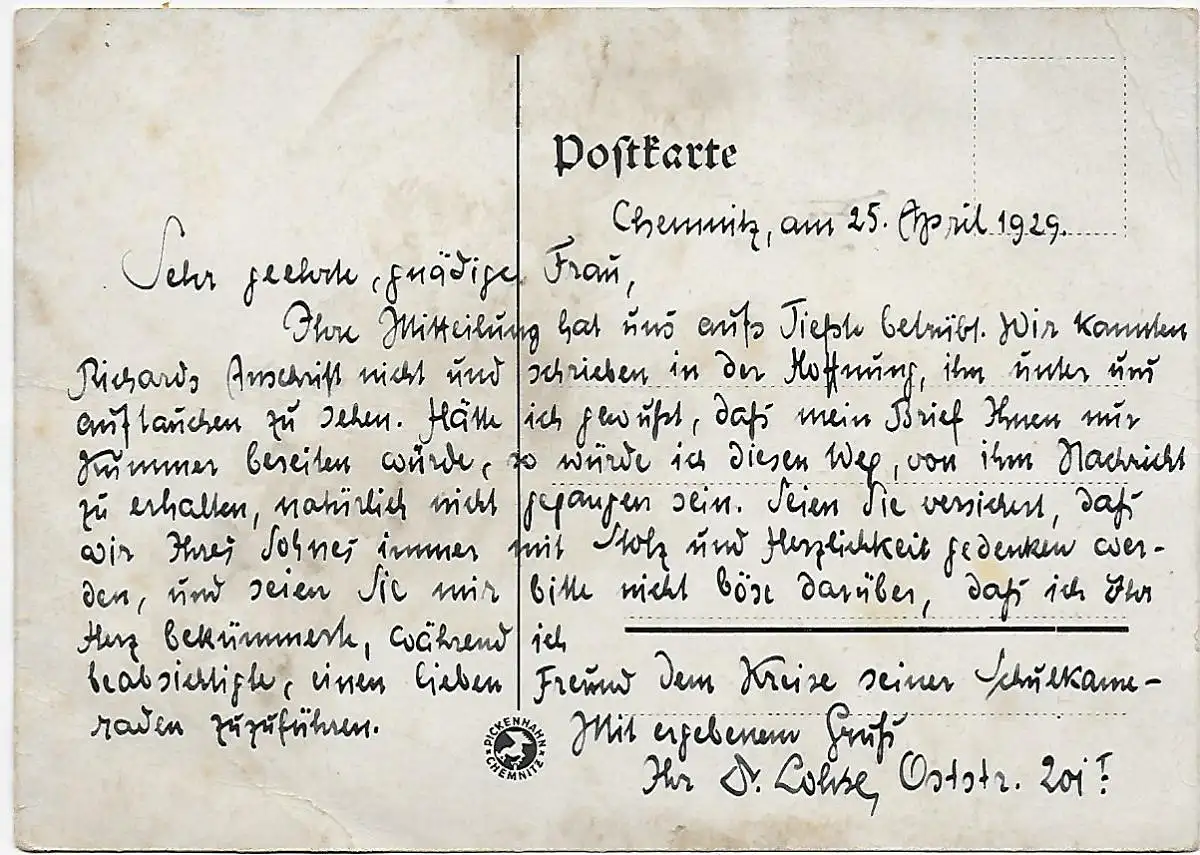 Postkarte
Chemnitz, am 25. April 1929.
Sehr geehrte, gnädige Frau,
Ihre Mitteilung hat uns aufs Tiefste betrübt. Wir kannten
Richards Anschrift nicht und schrieben in der Hoffnung, ihn unter uns
auftauchen zu sehen. Hätte ich gewußt, daß mein Brief Ihnen nur
Kummer bereiten würde, so würde ich diesen Weg, von ihm Nachricht
zu erhalten, natürlich nicht gegangen sein. Seien Sie versichert, daß
wir Ihres Sohnes immer mit Stolz und Herzlichkeit gedenken wer-
den, und seien Sie mir bitte nicht böse darüber, daß ich Ihr
Herz bekümmerte, während ich
beabsichtigte, einen lieben Freund dem Kreise seiner Schulkame-
raden zuzuführen.
Mit ergebenem Gruß
Ihr Dr. Lohse, Oststr.
PICKENHAHN CHEMNITZ